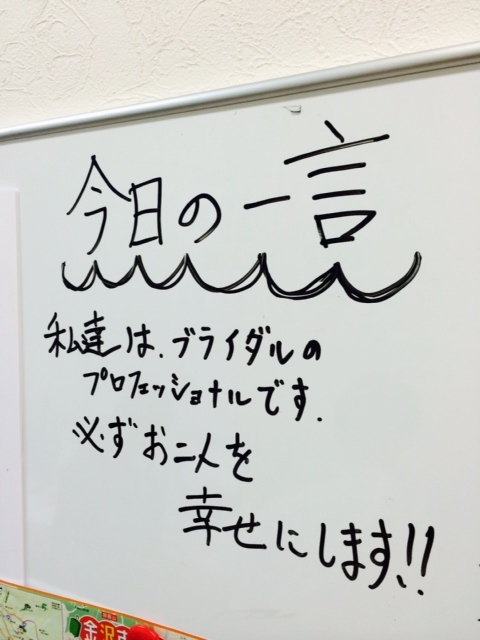 今日の一言
私達は、ブライダルの
プロフェッショナルです.
必ずお二人を
幸せにします!!
金沢